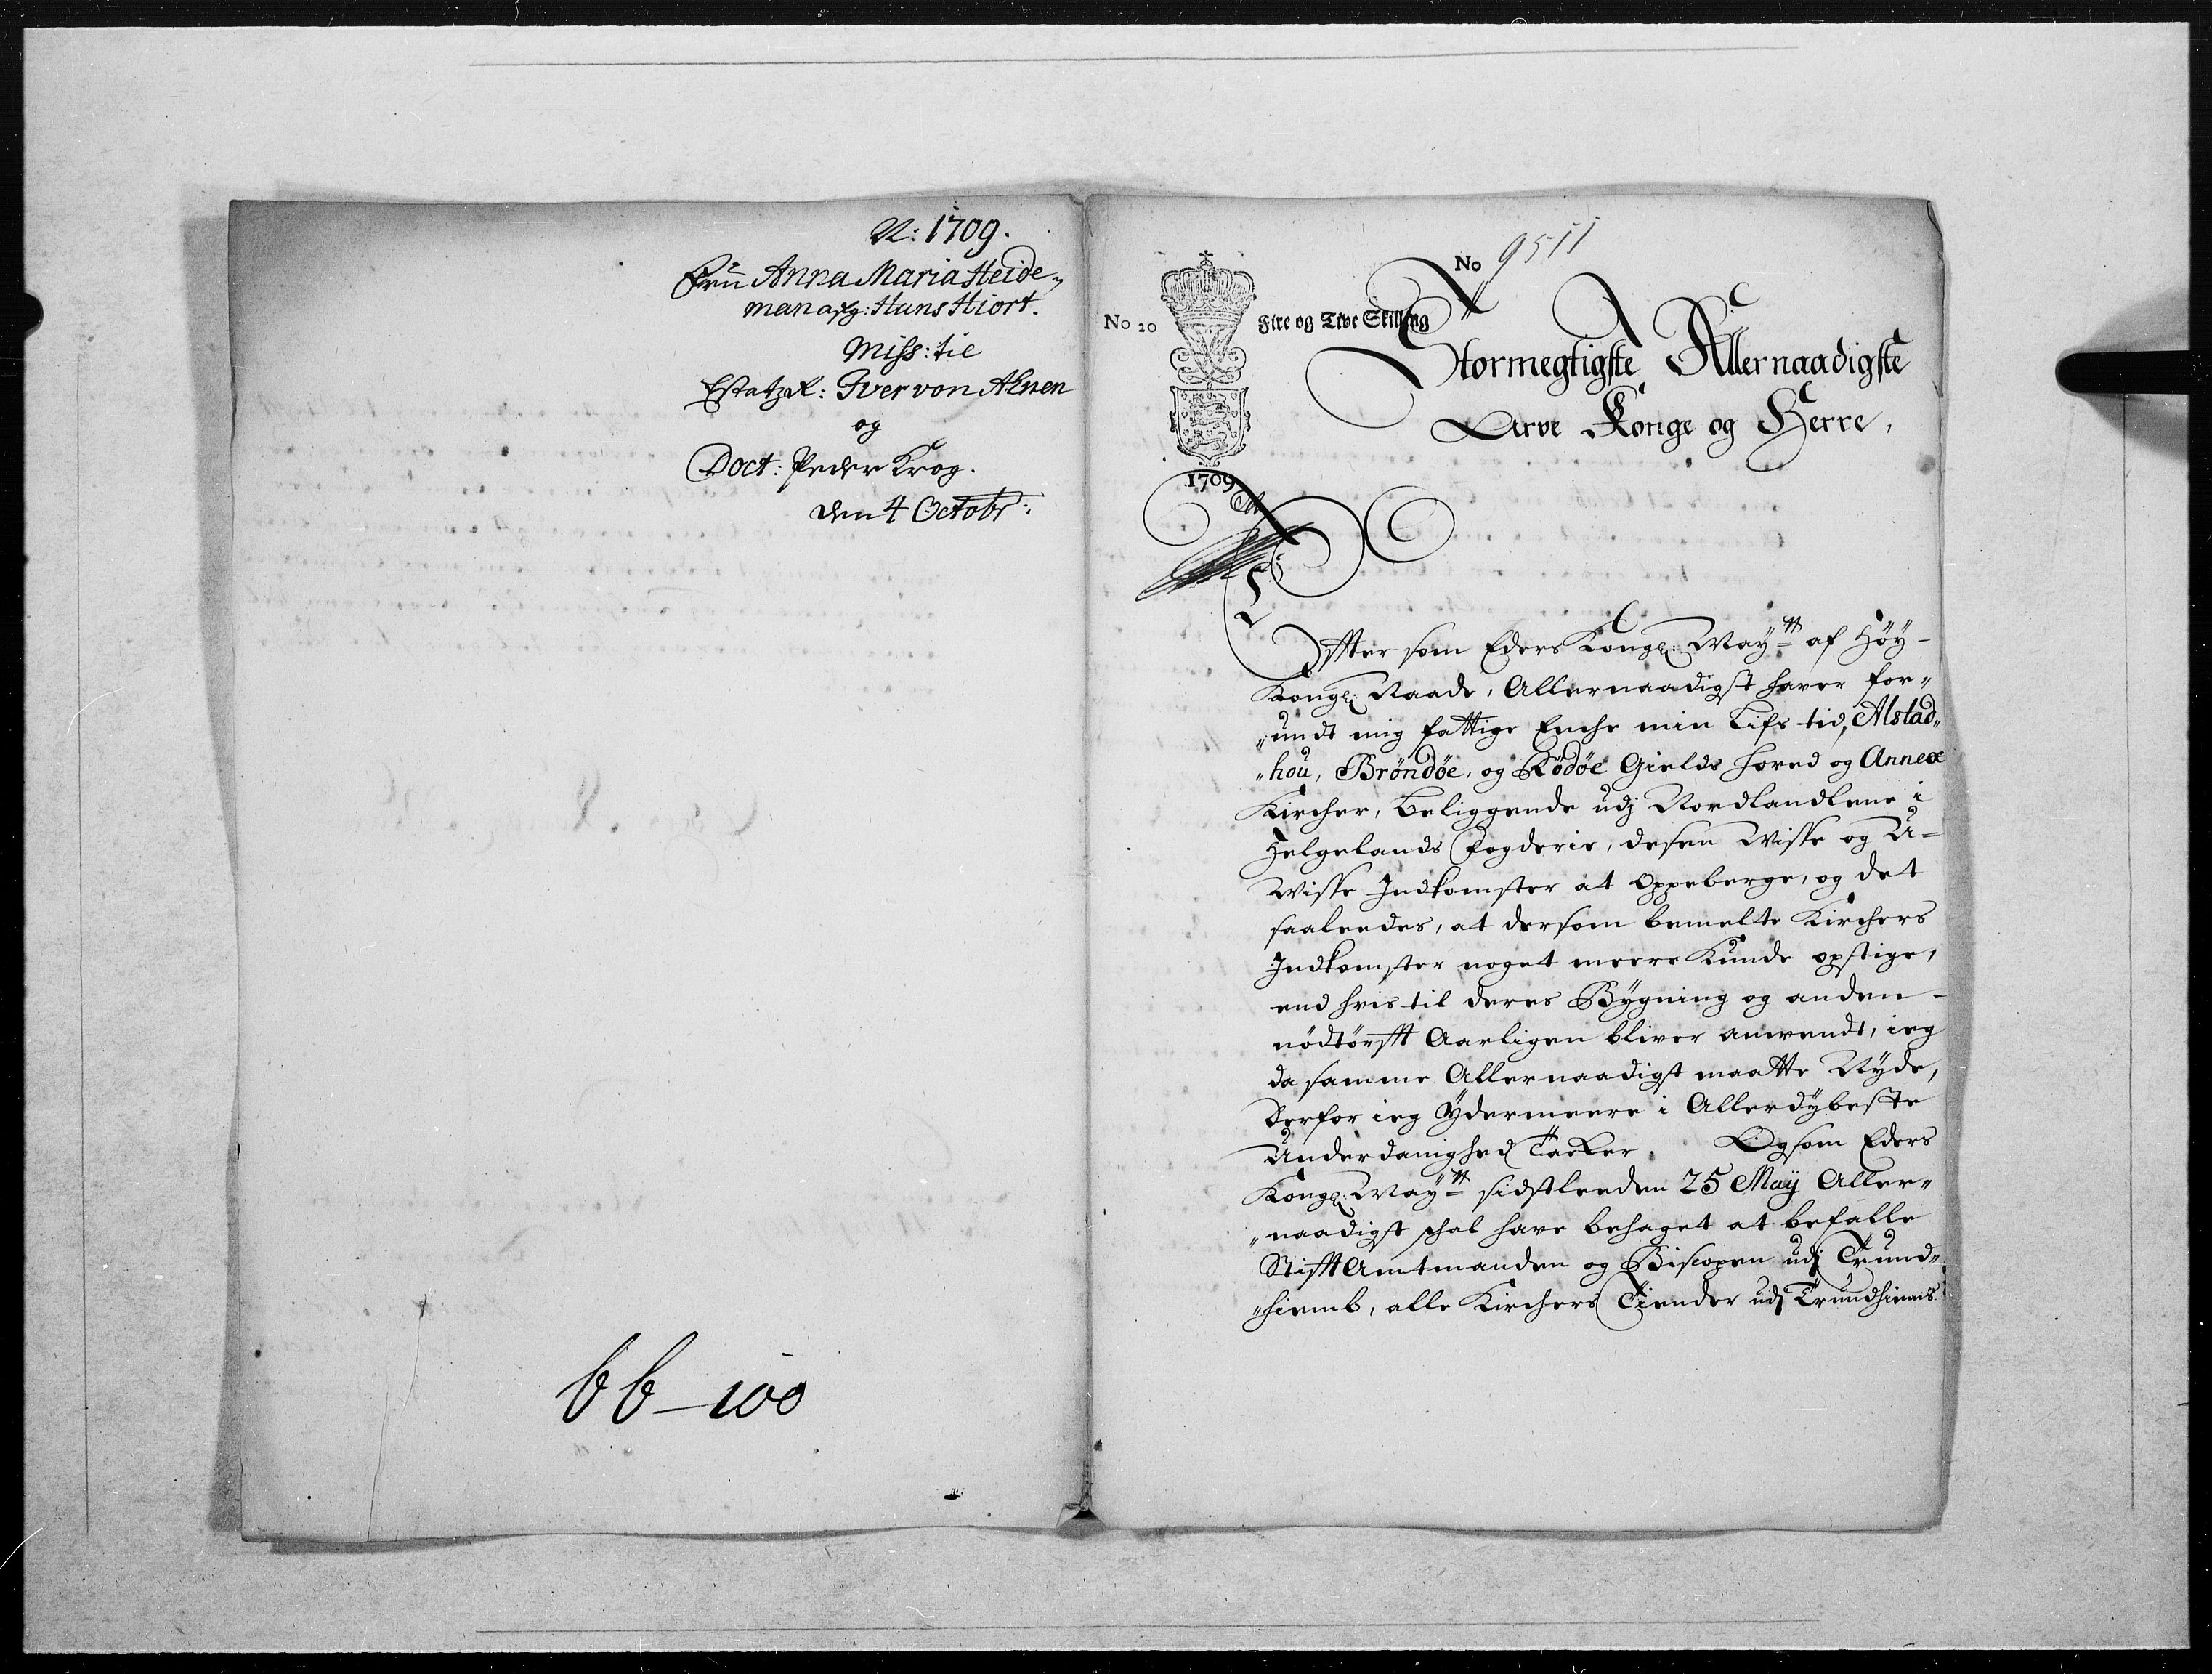 N: 1709.
Fru Anna Maria Heide„
man afg: Hans Hiort.
Miss: til
EtatzR: Iver von Ahnen
og
Doct: Peder Krog.
den 4 Octobr:
bb - 100
No 9511
No 20
Fire og Tive Skilling
1709
Stormegtigste Allernaadigste
Arve Konge og Herre,
Efftersom Eders Kongl: Mayᵗᵗ af Høy-
Kongl: Naade, Allernaadigst haver for„
„undt mig fattige Enche min Lifs tid, Alstad„
„hou, Brøndøe, og Rødøe Gields hoved og Annex
Kircher, beliggende udj Nordlandlene i
Helgelands Fogderie, desen Wisse og U=
Wisse Indkomster at Oppeberge, og det
saaleedes, at dersom bemelte Kirchers
Indkomster noget meere Kunde opstige,
end hvis til deres Bygning og anden-
nødtørfft Aarligen bliver anvendt, ieg
da samme Allernaadigst maatte Nyde,
Derfor ieg Ydermeere i Allerdybeste
Underdanighed Tacker. Og som Eders
Kongl: Mayᵗᵗ sidstleeden 25 May Aller„
„naadigst schal have behaget at befalle
Stifft Amtmanden og Biscopen udj Trund„
„hiemb, alle Kirchers Tiender udj Trundhiems